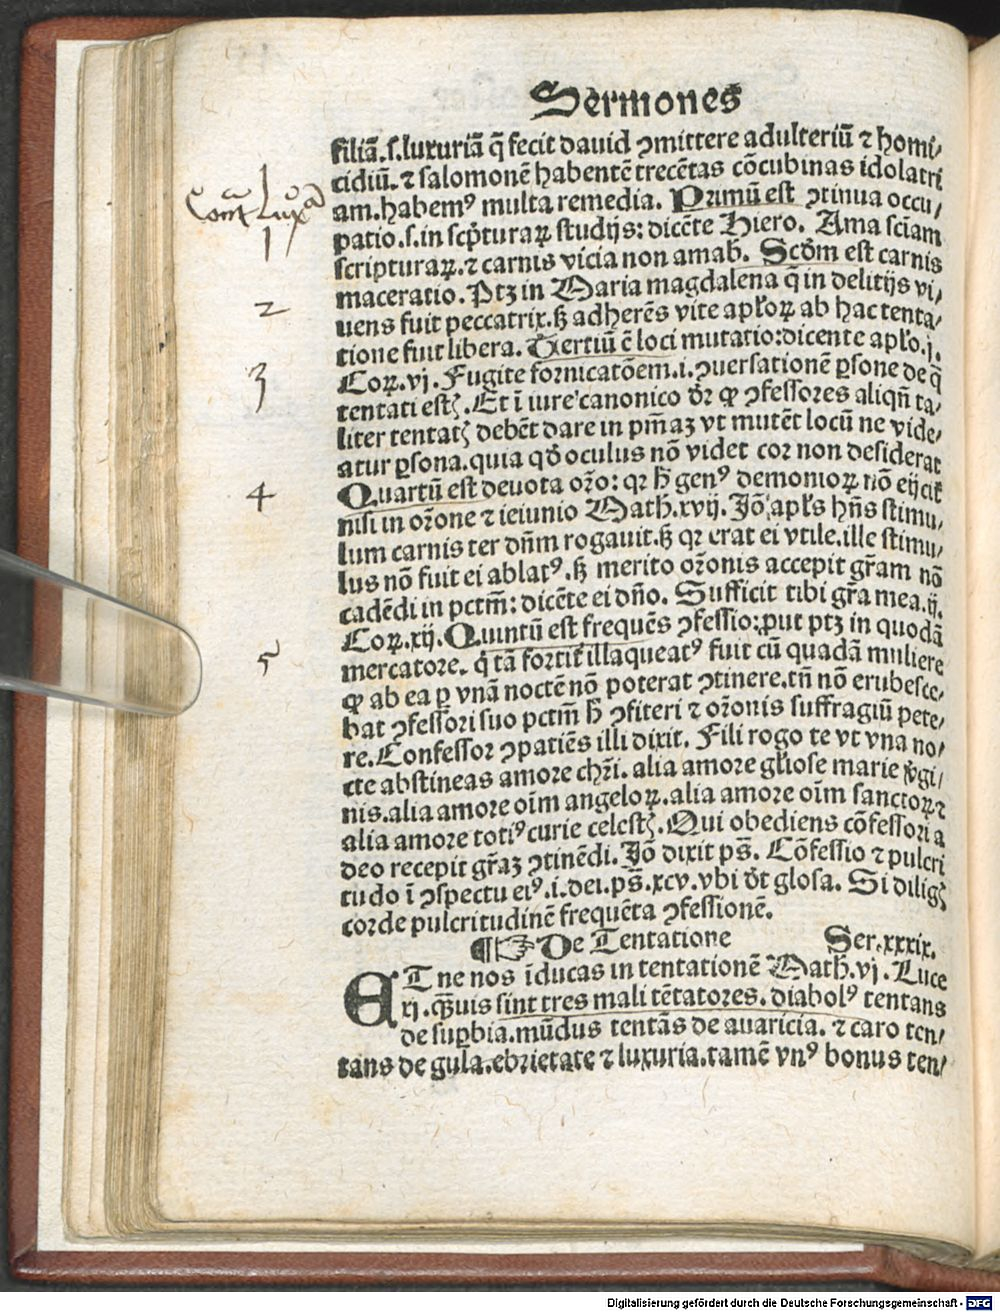 Sermones
filiā.s.luxuriā q̄ fecit dauid ꝯmittere adulteriū ⁊ homi⸗
cidiū.⁊ salomonē habentē trecētas cōcubinas idolatri
am.habemꝰ multa remedia. Primū est ꝯtinua occu⸗
patio.s.in scp̄turaꝝ studijs: dicēte Hiero. Ama sciam
scripturaꝝ.⁊ carnis vicia non amab̄. Scd̄m est carnis
maceratio.Ptꝫ in Maria magdalena q̄ in delitijs vi⸗
uens fuit peccatrix.ꝫ adherēs vite apl̄oꝝ ab hac tenta⸗
tione fuit libera. Tertiū ē loci mutatio:dicente apl̄o.j.
Coꝝ.vj. Fugite fornicatōem.i.ꝯuersationē ꝑsone de q̄
tentati estꝭ. Et ī iure canonico dr̄ ꝙ ꝯfessores aliqn̄ ta⸗
liter tentatꝭ debēt dare in pn̄iaꝫ vt mutēt locū ne vide⸗
atur ꝑsona.quia qd̄ oculus nō videt cor non desiderat
Quartū est deuota orō: qꝛ h̄ genꝰ demonioꝝ nō eijcit̄
nisi in orōne ⁊ ieiunio Math.xvij. Jō apl̄s hn̄s stimu⸗
lum carnis ter dn̄m rogauit.ꝫ qꝛ erat ei vtile.ille stimu⸗
lus nō fuit ei ablatꝰ.ꝫ merito orōnis accepit gr̄am nō
cadēdi in pctm̄: dicēte ei dn̄o. Sufficit tibi gr̄a mea.ij.
Coꝝ.xij. Quintū est frequēs ꝯfessio: ꝓut ptꝫ in quodā
mercatore. q̄ tā fortit̄ illaqueatꝰ fuit cū quadā muliere
ꝙ ab ea ꝑ vnā noctē nō poterat ꝯtinere.tn̄ nō erubesce⸗
bat ꝯfessori suo pctm̄ h̄ ꝯfiteri ⁊ orōnis suffragiū pete⸗
re. Confessor ꝯpatiēs illi dixit. Fili rogo te vt vna no⸗
cte abstineas amore chr̄i. alia amore gl̄iose marie v̄gi⸗
nis.alia amore oīm angeloꝝ.alia amore oīm sanctoꝝ ⁊
alia amore totiꝰ curie celestꝭ. Qui obediens cōfessori a
deo recepit gr̄aꝫ ꝯtinēdi. Jō dixit ps̄. Cōfessio ⁊ pulcri
tudo ī ꝯspectu eiꝰ.i.dei.ps̄.xcv.vbi dt̄ glosa. Si diligꝭ
corde pulcritudinē frequēta ꝯfessionē.
¶☞ De Tentatione Ser.xxxix.
ET ne nos īducas in tentationē Math̄.vj. Luce
xj. q̄̄uis sint tres mali tētatores. diabolꝰ tentans
de suꝑbia.mūdus tentās de auaricia. ⁊ caro ten⸗
tans de gula.ebrietate ⁊ luxuria.tamē vnꝰ bonus ten⸗
1
2
3
4
5
Digitalisierung gefördert durch die Deutsche Forschungsgemeinschaft - DFG